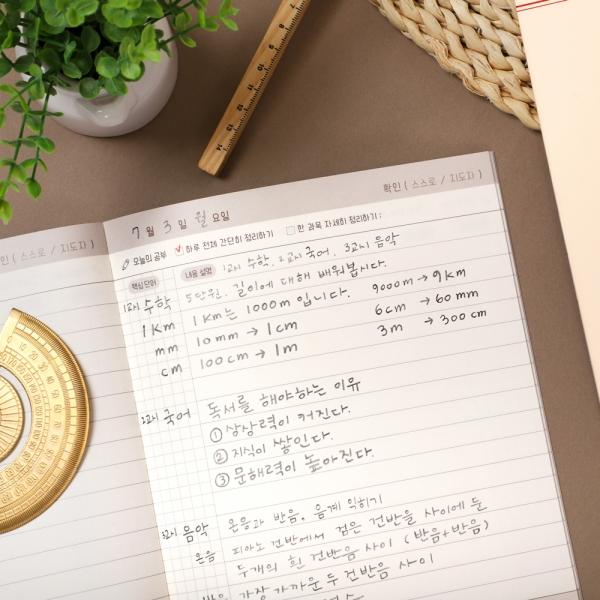 확인 ( 스스로 / 지도자 )
7월 3일 월요일
확인 ( 스스로 / 지도자 )
오늘의 공부 ✓ 하루 전체 간단히 정리하기 □ 한 과목 자세히 정리하기 :
핵심 단어 내용 설명 1교시 수학. 2교시 국어. 3교시 음악
1교시 수학 5단원. 길이에 대해 배워봅시다.
1Km 1Km는 1000m 입니다. 9000m → 9Km
mm 10mm → 1cm 6cm → 60mm
cm 100cm → 1m 3m → 300cm
2교시 국어 독서를 해야하는 이유
① 상상력이 커진다.
② 지식이 쌓인다.
③ 문해력이 높아진다.
3교시 음악 온음과 반음, 음계 익히기
온음 피아노 건반에서 검은 건반을 사이에 둔
두개의 흰 건반음 사이 (반음+반음)
반음 가장 가까운 두 건반음 사이